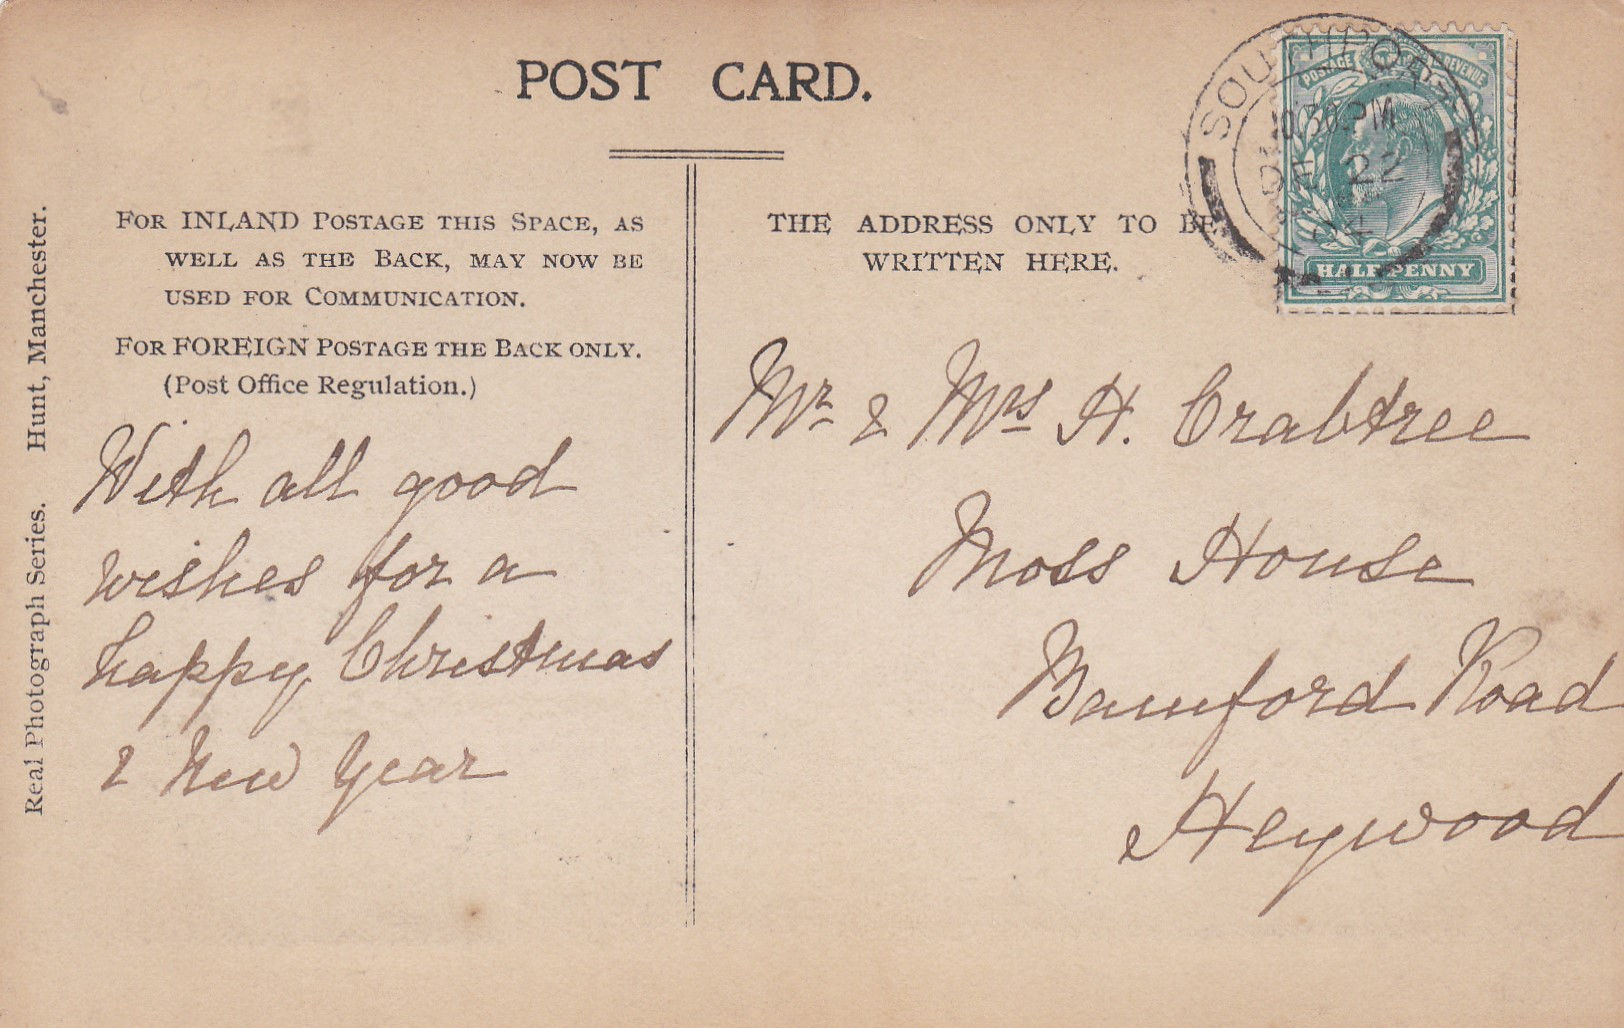 POST CARD.
FOR INLAND POSTAGE THIS SPACE, AS
WELL AS THE BACK, MAY NOW BE
USED FOR COMMUNICATION.
FOR FOREIGN POSTAGE THE BACK ONLY.
(Post Office Regulation.)
With all good
wishes for a
happy Christmas
& New Year
Real Photograph Series. Hunt, Manchester.
THE ADDRESS ONLY TO BE
WRITTEN HERE.
Mr & Mrs H. Crabtree
Moss House
Bamford Road
Heywood
POSTAGE REVENUE
HALFPENNY
SOUTHPORT
30 PM
DE 22